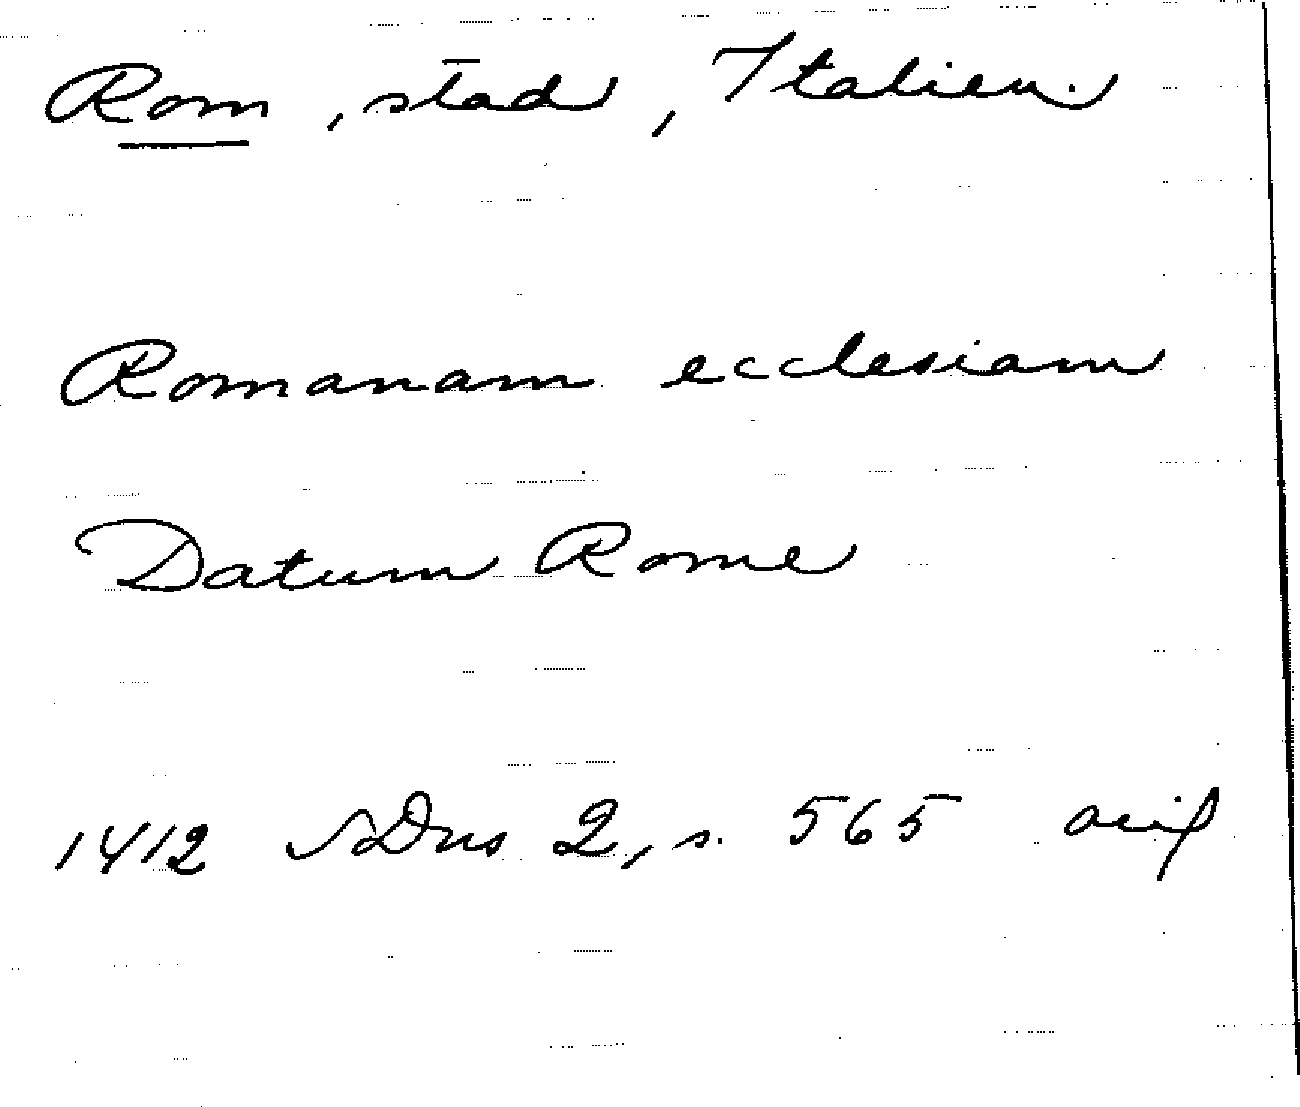 Rom, stad, Italien.
Romanam ecclesiam
Datum Rome
1412 SDns 2, s. 565